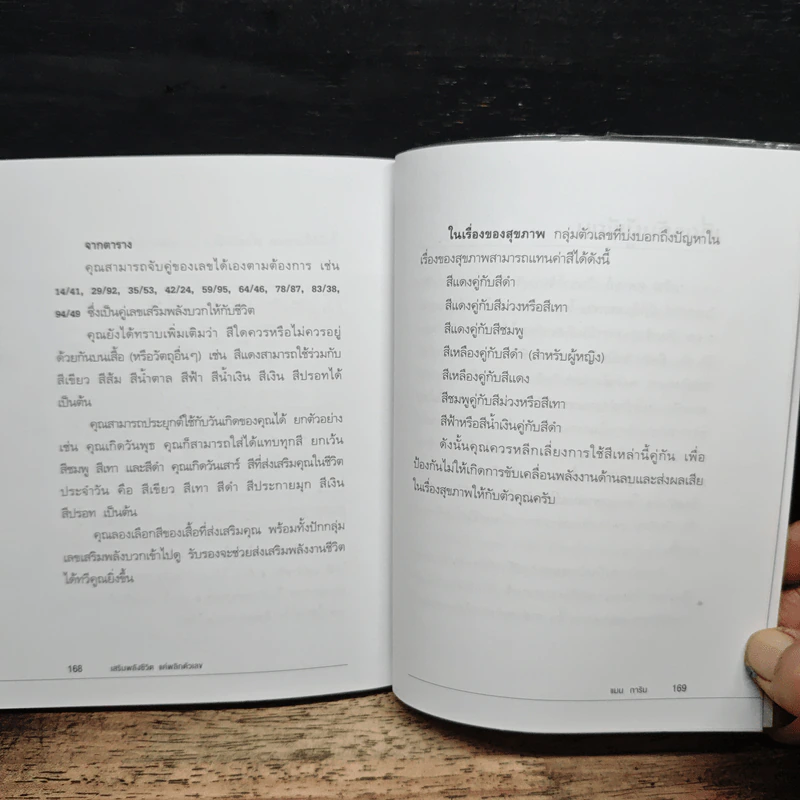 จากตาราง
คุณสามารถจับคู่ของเลขได้เองตามต้องการ เช่น
14/41, 29/92, 35/53, 42/24, 59/95, 64/46, 78/87, 83/38,
94/49 ซึ่งเป็นคู่เลขเสริมพลังบวกให้กับชีวิต
คุณยังได้ทราบเพิ่มเติมว่า สีใดควรหรือไม่ควรอยู่
ด้วยกันบนเสื้อ (หรือวัตถุอื่นๆ) เช่น สีแดงสามารถใช้ร่วมกับ
สีเขียว สีส้ม สีน้ำตาล สีฟ้า สีน้ำเงิน สีเงิน สีปรอทได้
เป็นต้น
คุณสามารถประยุกต์ใช้กับวันเกิดของคุณได้ ยกตัวอย่าง
เช่น คุณเกิดวันพุธ คุณก็สามารถใส่ได้แทบทุกสี ยกเว้น
สีชมพู สีเทา และสีดำ คุณเกิดวันเสาร์ สีที่ส่งเสริมคุณในชีวิต
ประจำวัน คือ สีเขียว สีเทา สีดำ สีประกายมุก สีเงิน
สีปรอท เป็นต้น
คุณลองเลือกสีของเสื้อที่ส่งเสริมคุณ พร้อมทั้งปักกลุ่ม
เลขเสริมพลังบวกเข้าไปดู รับรองจะช่วยส่งเสริมพลังงานชีวิต
ได้ทวีคูณยิ่งขึ้น
168 เสริมพลังชีวิต แค่พลิกตัวเลข
ในเรื่องของสุขภาพ กลุ่มตัวเลขที่บ่งบอกถึงปัญหาใน
เรื่องของสุขภาพสามารถแทนค่าสีได้ดังนี้
สีแดงคู่กับสีดำ
สีแดงคู่กับสีม่วงหรือสีเทา
สีแดงคู่กับสีชมพู
สีเหลืองคู่กับสีดำ (สำหรับผู้หญิง)
สีเหลืองคู่กับสีแดง
สีชมพูคู่กับสีม่วงหรือสีเทา
สีฟ้าหรือสีน้ำเงินคู่กับสีดำ
ดังนั้นคุณควรหลีกเลี่ยงการใช้สีเหล่านี้คู่กัน เพื่อ
ป้องกันไม่ให้เกิดการขับเคลื่อนพลังงานด้านลบและส่งผลเสีย
ในเรื่องสุขภาพให้กับตัวคุณครับ
แมน การิน 169